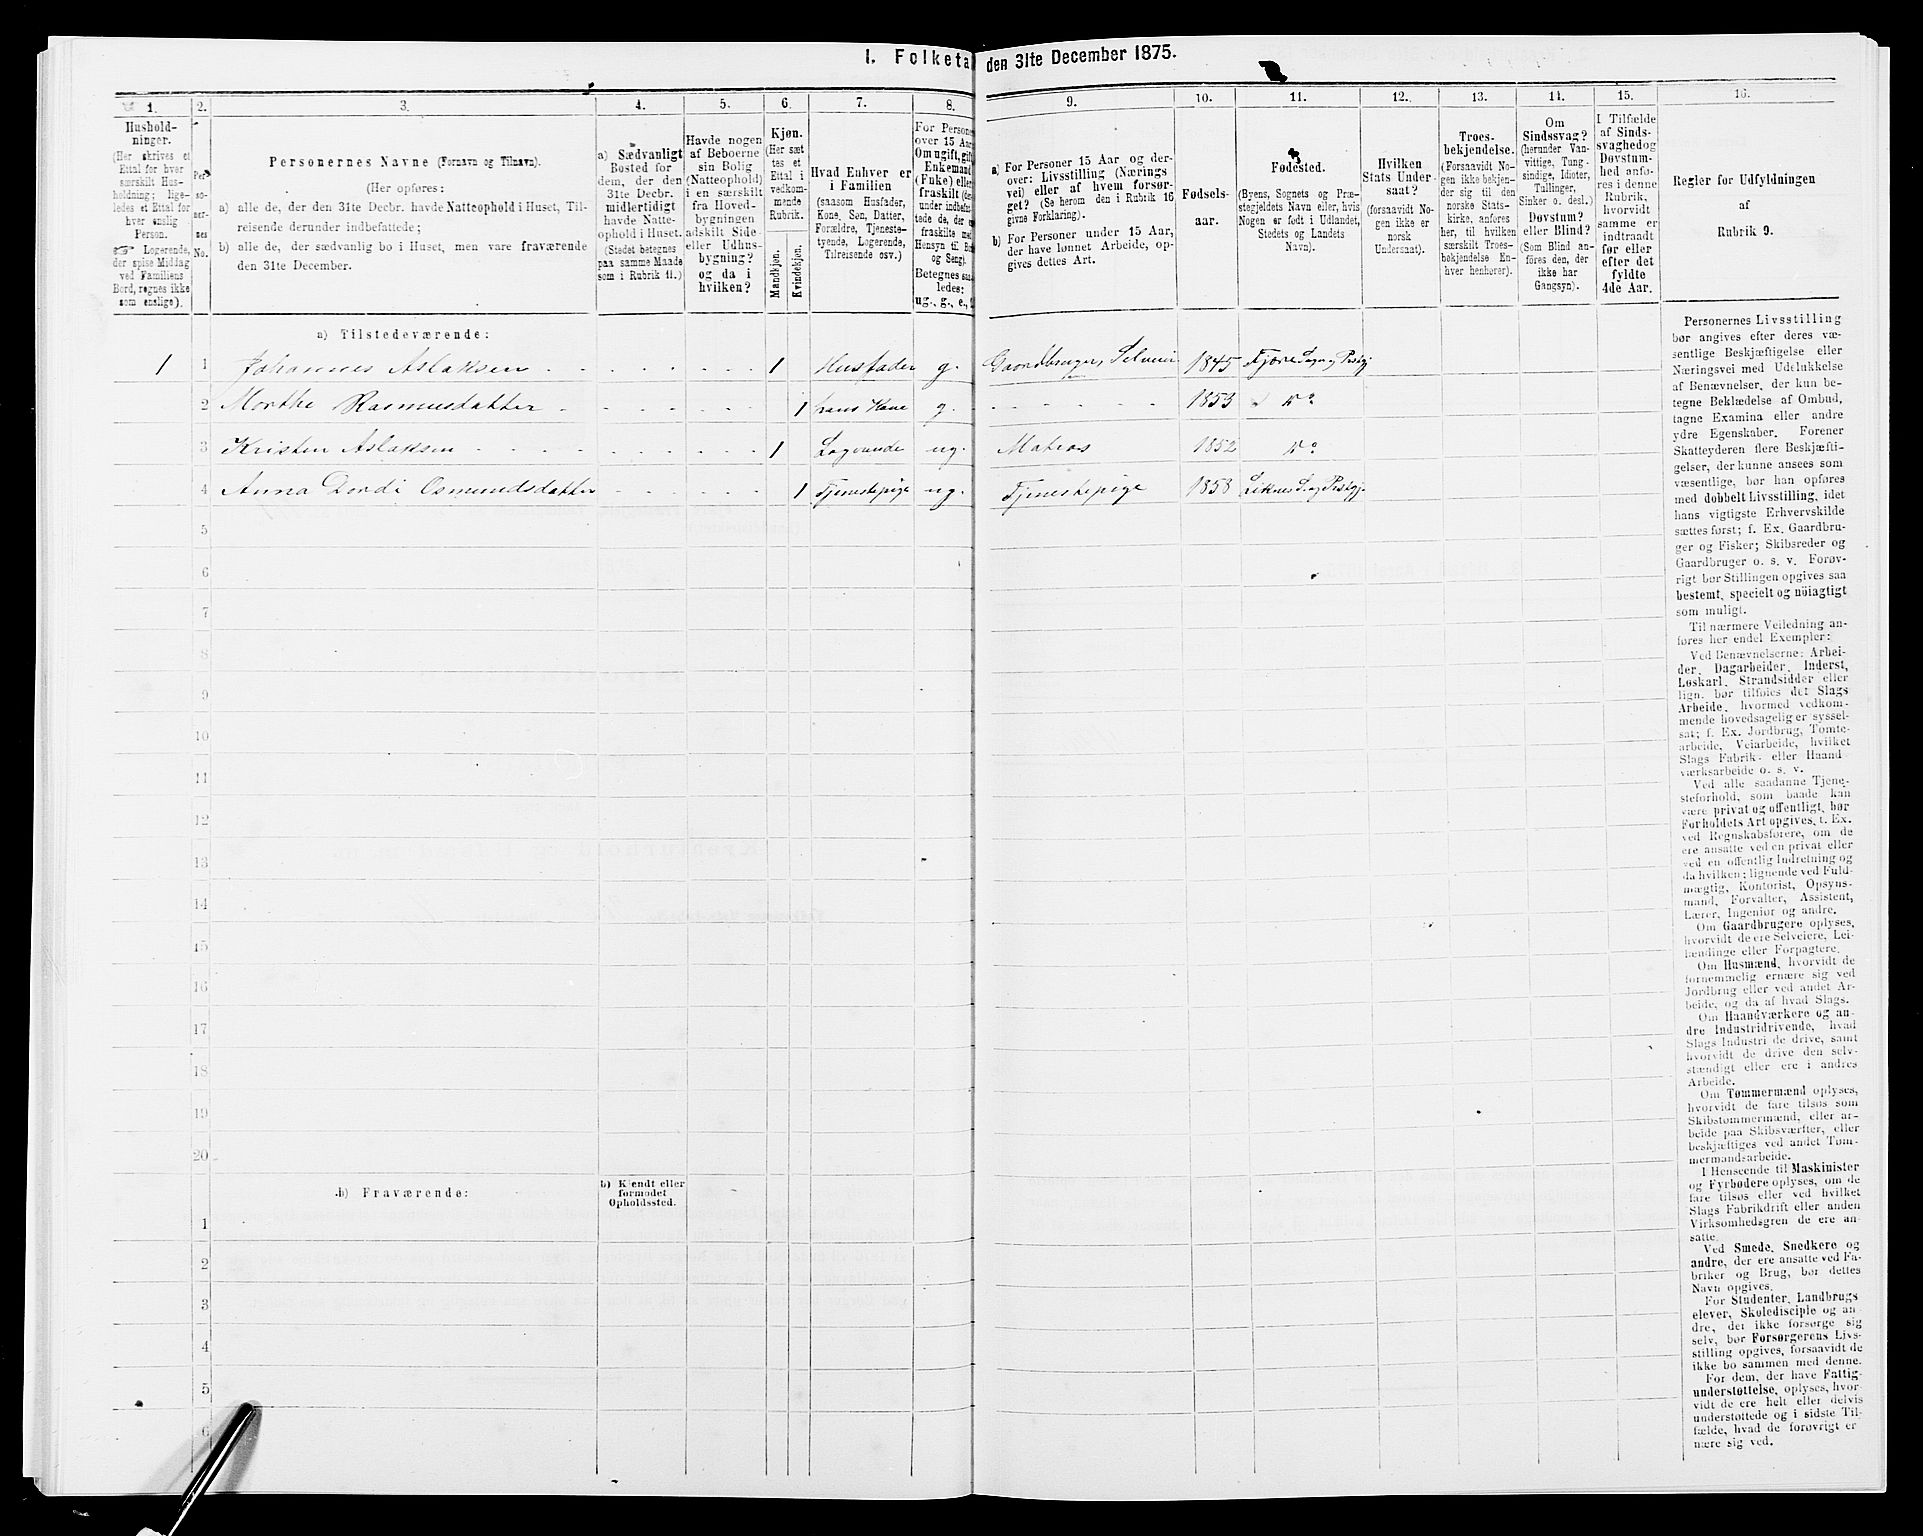 I. Folketa den 31te December 1875.
1. 2. 3. 4. 5. 6. 7. 8. 9. 10. 11. 12. 13. 14. 15. 16.
Hushold-
ninger.
(Her skrives et
Ettal for hver
særskilt Hus-
holdning; lige-
ledes et Ettal for
hver enslig
Person.
☞ Logerende,
der spise Middag
ved Familiens
Bord, regnes ikke
som enslige).
Per-
so-
ner-
nes
No.
Personernes Navne (Fornavn og Tilnavn).
(Her opføres:
a) alle de, der den 31te Decbr. havde Natteophold i Huset, Til-
reisende derunder indbefattede;
b) alle de, der sædvanlig bo i Huset, men vare fraværende
den 31te December.
a) Sædvanligt
Bosted for
dem, der den
31te Decbr.
midlertidigt
havde Natte-
ophold i Huset.
(Stedet betegnes
paa samme Maade
som i Rubrik 11.)
Havde nogen
af Beboerne
sin Bolig
(Natteophold)
i en særskilt
fra Hoved-
bygningen
adskilt Side-
eller Udhus-
bygning?
og da i
hvilken?
Kjøn.
(Her sæt-
tes et
Ettal i
vedkom-
mende
Rubrik.
Mandkjøn.
Kvindekjøn.
Hvad Enhver er
i Familien
(saasom Husfader,
Kone, Søn, Datter,
Forældre, Tjeneste-
tyende, Logerende,
Tilreisende osv.)
For Persone
over 15 Aar
Om ugift, gift
Enkemand
(Enke) eller
fraskilt (der-
under indbefat-
tede de, der ere
fraskilte med
Hensyn til Bo
og Seng).
Betegnes saa-
ledes:
ug., g., e.,
a) For Personer 15 Aar og der-
over: Livsstilling (Nærings-
vei) eller af hvem forsør-
get? (Se herom den i Rubrik 16
givne Forklaring).
b) For Personer under 15 Aar,
der have lønnet Arbeide, op-
gives dettes Art.
Fødsels-
aar.
Fødested.
(Byens, Sognets og Præ-
stegjeldets Navn eller, hvis
Nogen er født i Udlandet,
Stedets og Landets
Navn).
Hvilken
Stats Under-
saat?
(forsaavidt No-
gen ikke er
norsk
Undersaat).
Troes-
bekjendelse.
(Forsaavidt No-
gen ikke bekjen-
der sig til den
norske Stats-
kirke, anføres
her, til hvilken
særskilt Troes-
bekjendelse En-
hver henhører).
Om
Sindssvag?
(herunder Van-
vittige, Tung-
sindige, Idioter,
Tullinger,
Sinker o. desl.)
Døvstum?
eller Blind?
(Som Blind an-
føres den, der
ikke har
Gangsyn).
I Tilfælde
af Sinds-
svaghed og
Døvstum-
hed anfø-
res i denne
Rubrik,
hvorvidt
samme er
indtraadt
før eller
efter det
fyldte
4de Aar.
Regler for Udfyldningen
af
Rubrik 9.
a) Tilstedeværende:
1 1 Johannes Aslaksen 1 Husfader g. Gaardbruger, Selveier 1845 Fjære Sogn og Prstgj.
2 Morthe Rasmusdatter 1 hans Kone g. 1853 Do
3 Kristen Aslaksen 1 Logerende ug. Matros 1852 Do
4 Anna Dordi Osmundsdatter 1 Tjenestepige ug. Tjenestepige 1858 Liknes S. og Prstgj.
5
6
7
8
9
10
11
12
13
14
15
16
17
18
19
20
b) Fraværende:
b) Kjendt eller
formodet
Opholdssted.
1
2
3
4
5
6
Personernes Livsstilling
bør angives efter deres væ-
sentlige Beskjæftigelse eller
Næringsvei med Udelukkelse
af Benævnelser, der kun be-
tegne Beklædelse af Ombud,
tagne Examina eller andre
ydre Egenskaber. Forener
Skatteyderen flere Beskjæfti-
gelser, der kunne ansees som
væsentlige, bør han opføres
med dobbelt Livsstilling, idet
hans vigtigste Erhvervskilde
sættes først; f. Ex. Gaardbru-
ger og Fisker; Skibsreder og
Gaardbruger o. s. v. Forøv-
rigt bør Stillingen opgives saa
bestemt, specielt og nöiagtigt
som muligt.
Til nærmere Veiledning an-
føres her endel Exempler:
Ved Benævnelserne: Arbei-
der, Dagarbeider, Inderst,
Løskarl, Strandsidder eller
lign. bør tilføies det Slags
Arbeide, hvormed vedkom-
mende hovedsagelig er syssel-
sat; f. Ex. Jordbrug, Tomte-
arbeide, Veiarbeide, hvilket
Slags Fabrik- eller Haand-
værksarbeide o. s. v.
Ved alle saadanne Tjene-
steforhold, som baade kan
være privat og offentligt, bør
Forholdets Art opgives, t. Ex.
ved Regnskabsførere, om de
ere ansatte ved en privat eller
ved en offentlig Indretning og
da hvilken; lignende ved Fuld-
mægtig, Kontorist, Opsyns-
mand, Forvalter, Assistent,
Lærer, Ingeniør og andre.
Om Gaardbrugere oplyses,
hvorvidt de ere Selveiere, Lei-
lændinge eller Forpagtere.
Om Husmænd, hvorvidt de
fornemmelig ernære sig ved
Jordbrug eller ved andet Ar-
beide, og da af hvad Slags.
Om Haandværkere og an-
dre Industridrivende, hvad
Slags Industri de drive, samt
hvorvidt de drive den selv-
stændigt eller ere i andres
Arbeide.
Om Tømmermænd oplyses,
hvorvidt de fare tilsøs som
Skibstømmermænd, eller ar-
beide paa Skibsværfter, eller
beskjæftiges ved andet Tøm-
mermandsarbeide.
I Henseende til Maskinister
og Fyrbødere oplyses, om de
fare tilsøs eller ved hvilket
Slags Fabrikdrift eller anden
Virksomhedsgren de ere an-
satte.
Ved Smede, Snedkere og
andre, der ere ansatte ved Fa-
briker og Brug, bør dettes
Navn opgives.
For Studenter, Landbrugs-
elever, Skoledisciple og an-
dre, der ikke forsørge sig
selv, bør Forsørgerens Livs-
stilling opgives, forsaavidt de
ikke bo sammen med denne.
For dem, der have Fattig-
understøttelse, oplyses, hvor-
vidt de ere helt eller delvis
understøttede og i sidste Til-
fælde, hvad de forøvrigt er-
nære sig ved.